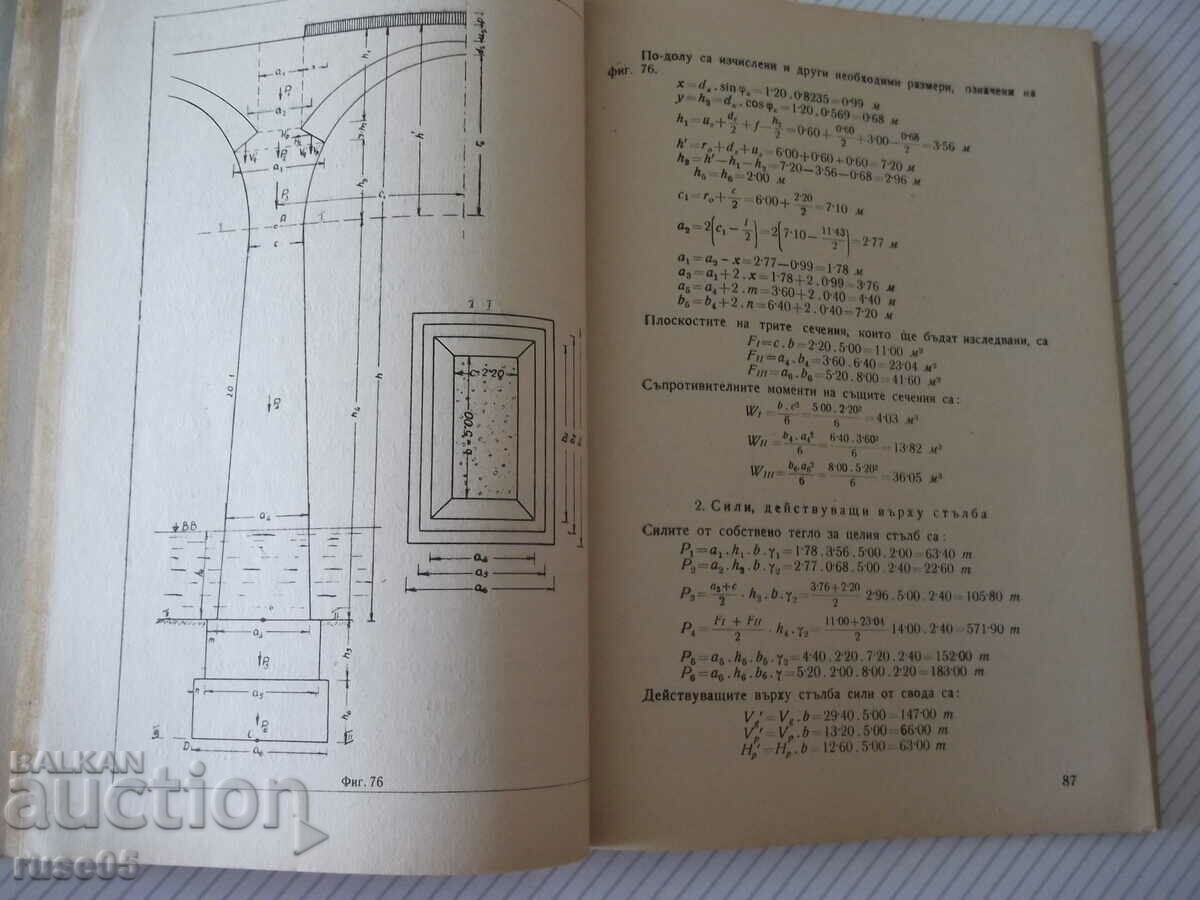 Фиг. 76
По-долу са изчислени и други необходими размери, означени на
фиг. 76.
x=dₛ.sin φₛ=1·20.0·8235=0·99 м
y=h₂=dₛ.cos φₛ=1·20.0·569=0·68 м
h₁=uₛ+dₛ/2+f−h₂/2=0·60+0·60/2+3·00−0·68/2=3·56 м
h'=r₀+dₛ+uₛ=6·00+0·60+0·60=7·20 м
h₃=h'−h₁−h₂=7·20−3·56−0·68=2·96 м
h₅=h₆=2·00 м
c₁=r₀+c/2=6·00+2·20/2=7·10 м
a₂=2(c₁−l/2)=2(7·10−11·43/2)=2·77 м
a₁=a₂−x=2·77−0·99=1·78 м
a₃=a₁+2.x=1·78+2.0·99=3·76 м
a₅=a₄+2.m=3·60+2.0·40=4·40 м
b₅=b₄+2.n=6·40+2.0·40=7·20 м
Плоскостите на трите сечения, които ще бъдат изследвани, са
F_I=c.b=2·20.5·00=11·00 м²
F_II=a₄.b₄=3·60.6·40=23·04 м²
F_III=a₆.b₆=5·20.8·00=41·60 м²
Съпротивителните моменти на същите сечения са:
W_I=b.c²/6=5·00.2·20²/6=4·03 м³
W_II=b₄.a₄²/6=6·40.3·60²/6=13·82 м³
W_III=b₆.a₆²/6=8·00.5·20²/6=36·05 м³
2. Сили, действуващи върху стълба
Силите от собствено тегло за целия стълб са:
P₁=a₁.h₁.b.γ₁=1·78.3·56.5·00.2·00=63·40 т
P₂=a₂.h₂.b.γ₂=2·77.0·68.5·00.2·40=22·60 т
P₃=a₃+c/2.h₃.b.γ₂=3·76+2·20/2 2·96.5·00.2·40=105·80 т
P₄=F_I+F_II/2.h₄.γ₂=11·00+23·04/2 14·00.2·40=571·90 т
P₅=a₅.h₅.b₅.γ₂=4·40.2·20.7·20.2·40=152·00 т
P₆=a₆.h₆.b₆.γ=5·20.2·00.8·00.2·40=183·00 т
Действуващите върху стълба сили от свода са:
V_g'=V_g.b=29·40.5·00=147·00 т
V_p'=V_p.b=13·20.5·00=66·00 т
H_p'=H_p.b=12·60.5·00=63·00 т
87
c=2·20
b=5·00
20:1
BALKAN
auction
ruse05